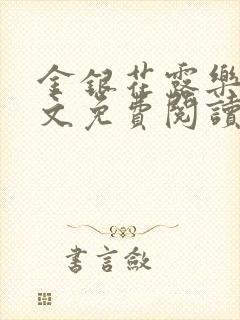 金銀花露樂
文免費閱讀
書言敘